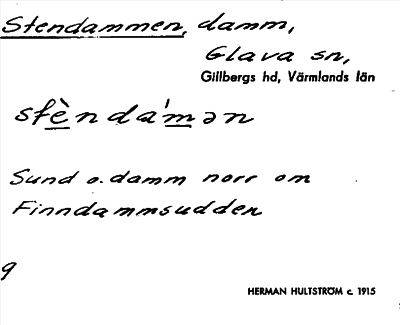 Stendammen, damm,
Glava sn,
Gillbergs hd, Värmlands län
stè̱nda'm̱ən
Sund o. damm norr om
Finndammsudden
9
HERMAN HULTSTRÖM c. 1915